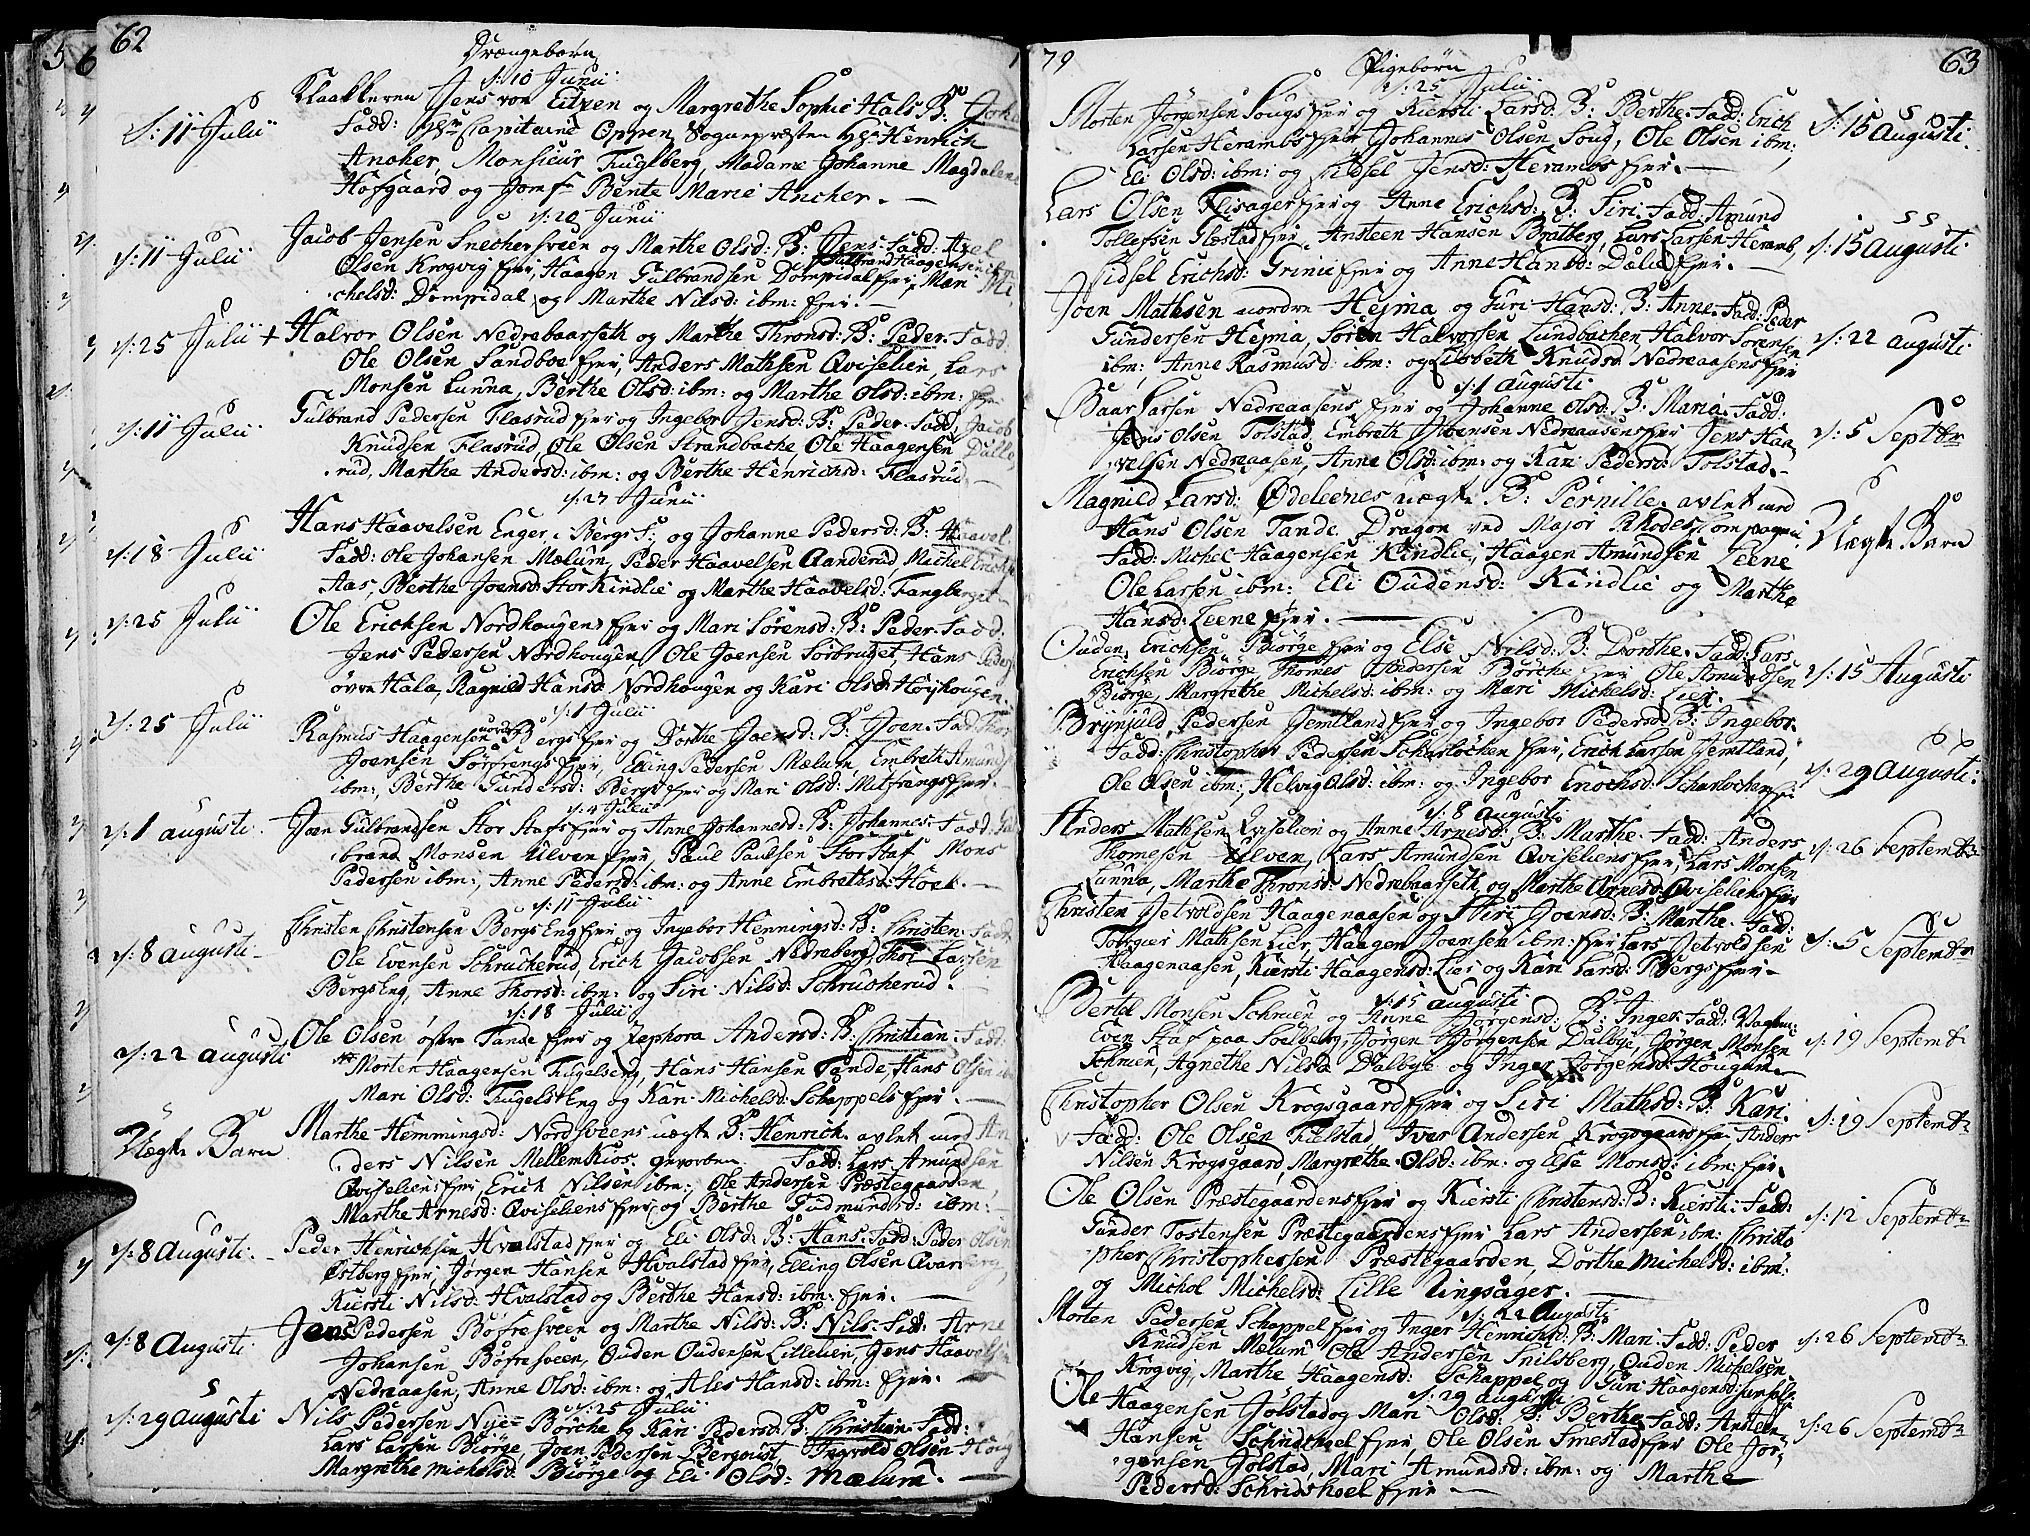 62
Drængebørn
d: 10 Junii
Klokkeren Jens von Eitzen og Margrethe Sophie Hals B:
d: 11 Julii
Fadd: Hr Capitaine Oppen, Sognepræsten Hr Henrich
Ancher, Monsieur Fuglberg, Madame Johanne Magdalene
Hofgaard og Jomf: Bente Marie Ancher.
d: 20 Junii
Jacob Jensen Snechersveen og Marthe Olsd: B: Jens. Fadd: Axel
Gulbrand Haagensen ibm
d: 11 Julii
Olsen Krogvig ejer, Haagen Gulbrandsen Dompidal ejer, Mari Mi
chelsd: Dompidal og Marthe Nilsd: ibm: ejer.
d: 25 Julii + Halvor Olsen Nedrebaarseth og Marthe Thronsd: B: Peder. Fadd.
Ole Olsen Sandboe ejer, Anders Mathsen Qviselien, Lars
Monsen Lunna, Berthe Olsd: ibm: og Marthe Olsd: ibm:
d: 11 Julii
Gulbrand Pedersen Flasrud ejer og Ingebor Jensd: B: Peder. Fadd: Jacob
Knudsen Flasrud, Ole Olsen Strandbache Ole Haagensen Dulle
rud, Marthe Andersd: ibm: og Berthe Henrichsd: Flasrud
d: 27 Junii
Hans Haavelsen Enger i Bergs S: og Johanne Pedersd: B: Haavel.
d: 18 Julii
Fadd: Ole Johansen Mælum, Peder Haavelsen Aanderud Michel Erichs
Aas, Berthe Joensd: Stor Kindlie og Marthe Haavelsd: Fangberget
d: 25 Julii
Ole Erichsen Nordhougen ejer og Mari Sørensd: B: Peder. Fadd.
Jens Pedersen Nordhougen, Ole Joensen Sorbruget, Hans Peders
øvre Hala, Ragnild Hansd: Nordhougen og Kari Olsd: Høijhougen.
d: 1 Julii
d: 25 Julii
Rasmus Haagensen nordr Bergs ejer og Dorthe Joensd: B: Joen. Fad:
Joensen Sørfrengs ejer, Elling Pedersen Mælum, Embreth Amunds
ibm:, Berthe Gundersd: Bergs ejer og Mari Olsd: Mitfrengs ejer.
d: 4 Julii
d: 1 augusti.
Joen Gulbrandsen Stor Stafs ejer og Anne Johannesd: B: Johannes. Fadd: Gul
brand Monsen Ulven ejer, Paul Paulsen Stor Staf Mons
Pedersen ibm:, Anne Pedersd: ibm: og Anne Embrethsd: Hoel.
d: 11 Julii
Christen Christensen Bergs Eng ejer og Ingebor Henningsd: B: Christen. Fadd:
d: 8 augusti
Ole Evensen Schrucherud, Erich Jacobsen Nedreberg, Thor Larsen
Bergs Eng, Anne Thorsd: ibm: og Siri Nilsd: Schrucherud.
d: 18 Julii
Ole Olsen østre Tande ejer og Zephora Andersd: B: Christian. Fadd:
d: 22 augusti
Morten Haagensen Fugelseng, Hans Hansen Tande, Hans Olsen ibm
Mari Olsd: Fugelseng og Kari Michelsd: Schappels ejer.
Uægte Barn
Marthe Hemmingsd: Nordsveens uægte B: Henrich. avlet med An
ders Nilsen Mellem Kios. gevorben. Fadd: Lars Amundsen
Qviseliens ejer Erich Nilsen ibm:, Ole Andersen Præstegaarden,
Marthe Arnesd: Qviseliens ejer og Berthe Gudmundsd: ibm:
d: 8 Augusti.
Peder Henrichsen Hvalstad ejer og Eli Olsd: B: Hans. Fadd: Peder Olsen
Østberg ejer, Jørgen Hansen Hvalstad ejer, Elling Olsen Qvarberg,
Kiersti Nilsd: Hvalstad og Berthe Hansd: ibm: ejer.
d: 8 Augusti.
Jens Pedersen Bofresveen og Marthe Nilsd: B: Nils. Fadd: Arne
Johansen Bofresveen, Ouden Oudensen Lilleeien, Jens Haavelsen
Nedreaasen, Anne Olsd: ibm: og Ales Hansd: ibm: ejer.
d: 25 Julii
d: 29 augusti
Nils Pedersen Nye Børche og Kari Pedersd: B: Christian. Fadd:
Lars Larsen Biørge, Joen Pedersen Bergqvist, Ingvold Olsen Houg
Margrethe Michelsd: Biørge og Eli Olsd: Mælum.
79
Pigebørn
63
d: 25 Julii
Morten Jørgensen Sougs ejer og Kiersti Larsd: B: Berthe. Fadd: Erich
d: 15 Augusti.
Larsen Herambs ejer Johannes Olsen Soug, Ole Olsen ibm:,
Eli Olsd: ibm: og Sidsel Jensd: Herambs ejer.
Lars Olsen Flisager ejer og Anne Erichsd: B: Siri. Fadd: Amund
d: 15 Augusti
Tollefsen Gløstad ejer, Ansteen Hansen Bratberg, Lars Larsen Heramb,
Sidsel Erichsd: Grinie ejer og Anne Hansd: Dælie ejer.
Joen Mathsen nordre Hejma og Guri Hansd: B: Anne. Fadd: Peder
d: 22 augusti
Gundersen Hejma, Søren Halvorsen Lundbachen Halvor Sørensen
ibm:, Anne Rasmusd: ibm: og Lisbeth Knudsd: Nedreaasens ejer
d: 1 augusti
Baar Larsen Nedreaasens ejer og Johanne Olsd: B: Maria. Fadd:
d: 5 Septbr
Jens Olsen Tolstad, Embreth Joensen Nedreaasens ejer Jens Haa
velsen Nedreaasen, Anne Olsd: ibm: og Kari Pedersd: Tolstad.
Magnild Larsd: Ødeleenes uægte B: Pernille. avlet med
Uægte Barn
Hans Olsen Tande. Dragon ved Major Rhodes Compagni.
Fadd: Michel Haagensen Kindlie, Haagen Amundsen Leene
Ole Larsen ibm: Eli Oudensd: Kindlie og Marthe
Hansd: Leene ejer.
Ouden Erichsen Biørge ejer og Else Nilsd: B: Dorthe. Fadd: Lars
d: 15 Augusti
Erichsen Biørge Thomes Pedersen Børche ejer Ole Amundsen
Biørge, Margrethe Michelsd: ibm: og Mari Michelsd: Lien.
Brynjuld Pedersen Jemtland ejer og Ingebor Pedersd: B: Ingebor.
d: 29 Augusti:
Fadd: Christopher Pedersen Scharlochen ejer, Erich Larsen Jemtland,
Ole Olsen ibm:, Helvig Olsd: ibm: og Ingebor Enochsd: Scharlochen ejer
d: 8 augusti
Anders Mathsen Qviselien og Anne Arnesd: B: Marthe. Fadd: Anders
d: 26 Septembr
Thomesen Ulven, Lars Amundsen Qviseliens ejer, Lars Monsen
Lunna, Marthe Thronsd: Nedrebaarseth og Marthe Arnesd: Qviseliens ejer
Christen Jetvoldsen Haagenaasen og Siri Joensd: B: Marthe. Fadd:
d: 5 Septembr
Torgier Mathsen Lier, Haagen Joensen ibm: ejer Lars Jetvoldsen
Haagenaasen, Kiersti Haagensd: Lier og Kari Larsd: Bergs ejer.
d: 15 augusti
Bertel Monsen Schmien og Anne Jørgensd: B: Inger. Fadd:
d: 19 Septembr
Even Staf paa Soelberg, Jørgen Jørgensen Dalbye, Jørgen Monsen
Schmien, Agnethe Nilsd: Dalbye og Inger Jørgensd: Hougum
Christopher Olsen Krogsgaard ejer og Siri Mathsd: B: Kari
d: 19 Septembr
Fadd: Ole Olsen Fulstad, Iver Andersen Krogsgaard ejer Anders
Nilsen Krogsgaard, Margrethe Olsd: ibm: og Else Monsd: ibm: ejer.
Ole Olsen Præstegaardens ejer og Kiersti Christensd: B: Kiersti. Fadd:
d: 12 Septembr
Gunder Tostensen Præstegaardens ejer Lars Andersen ibm: Christo
pher Christophersen Præstegaarden, Dorthe Michelsd: ibm:
og Michol Michelsd: Lille Ringsager.
d: 22 Augusti
Morten Pedersen Schappel ejer og Inger Henrichsd: B: Mari. Fadd: Peder
d: 26 Septembr
Knudsen Mælum Ole Andersen Snilsberg, Ouden Michelsen
Krogvig, Marthe Haagensd: Schappel og Guri Haagensd:
d: 29 augusti
Ole Haagensen Jølstad og Mari Olsd: B: Berthe Fadd: Anders
d: 26 Septembr
Hansen Schridshoel ejer, Ole Olsen Smestad ejer Ole Jør
gensen Jølstad, Mari Amundsd: ibm: og Marthe
Pedersd: Schridshoel ejer